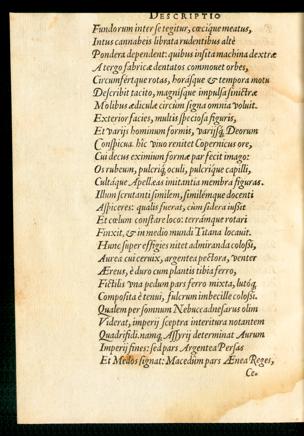 DESCRIPTIO
Fundorum inter se tegitur, cœcique meatus,
Intus cannabeis librata rudentibus altè
Pondera dependent: quibus insita machina dextræ
A tergo fabricæ dentatos commouet orbes,
Circumfertque rotas, horasque & tempora motu
Describit tacito, magnisque impulsa sinistræ
Molibus ædiculæ circùm signa omnia voluit.
Exterior facies, multis speciosa figuris,
Et varijs hominum formis, varijsq́; Deorum
Conspicua. hîc viuo renitet Copernicus ore,
Cui decus eximium formæ par fecit imago:
Os rubeum, pulcriq́; oculi, pulcrique capilli,
Cultáque Apellæas imitantia membra figuras.
Illum scrutanti similem, similémque docenti
Aspiceres: qualis fuerat, cùm sidera iussit
Et cœlum constare loco: terrámque rotari
Finxit, & in medio mundi Titana locauit.
Hunc super effigies nitet admiranda colossi,
Aurea cui ceruix, argentea pectora, venter
Æreus, è duro cum plantis tibia ferro,
Fictilis vna pedum pars ferro mixta, lutóq;
Composita è tenui, fulcrum imbecille colossi.
Qualem per somnum Nebuccadnesarus olim
Viderat, imperij sceptra interitura notantem
Quadrifidi. namq; Assyrij determinat Aurum
Imperij fines: sed pars Argentea Persas
Et Medos signat: Macedûm pars Ænea Reges,